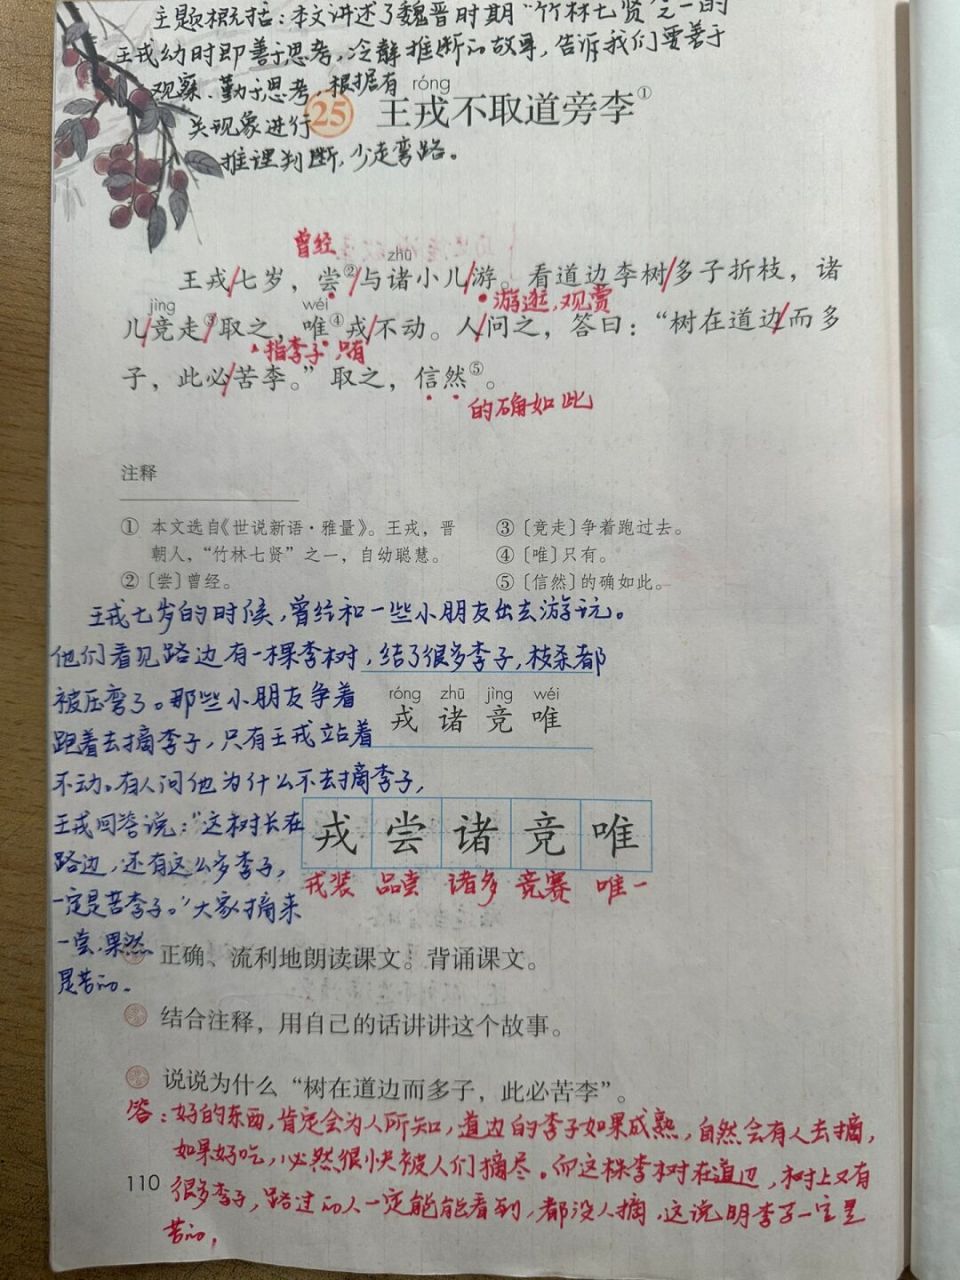 主题概括：本文讲述了魏晋时期“竹林七贤”之一的
王戎幼时即善于思考，冷静推断的故事，告诉我们要善于
观察、勤于思考，根据有
关现象进行
推理判断，少走弯路。
róng
25 王戎不取道旁李①
曾经
zhū
王戎/七岁，尝②/与诸小儿/游。看道边李树/多子折枝，诸
游逛，观赏
jìng wéi
儿/竞走③/取之，唯④戎/不动。人/问之，答曰：“树在道边/而多
指李子 只有
子，此必/苦李。”取之，信然⑤。
的确如此
注释
① 本文选自《世说新语·雅量》。王戎，晋
朝人，“竹林七贤”之一，自幼聪慧。
②〔尝〕曾经。
③〔竞走〕争着跑过去。
④〔唯〕只有。
⑤〔信然〕的确如此。
王戎七岁的时候，曾经和一些小朋友出去游玩。
他们看见路边有一棵李树，结了很多李子，枝条都
被压弯了。那些小朋友争着
跑着去摘李子，只有王戎站着
不动。有人问他为什么不去摘李子，
王戎回答说：“这树长在
路边，还有这么多李子，
一定是苦李子。”大家摘来
一尝，果然
是苦的。
róng zhū jìng wéi
戎 诸 竞 唯
戎 尝 诸 竞 唯
戎装 品尝 诸多 竞赛 唯一
正确、流利地朗读课文。背诵课文。
结合注释，用自己的话讲讲这个故事。
说说为什么“树在道边而多子，此必苦李”。
答：好的东西，肯定会为人所知，道边的李子如果成熟，自然会有人去摘，
如果好吃，必然很快被人们摘尽。而这棵李树在道边，树上又有
很多李子，路过的人一定能能看到，都没人摘，这说明李子一定是
苦的，
110